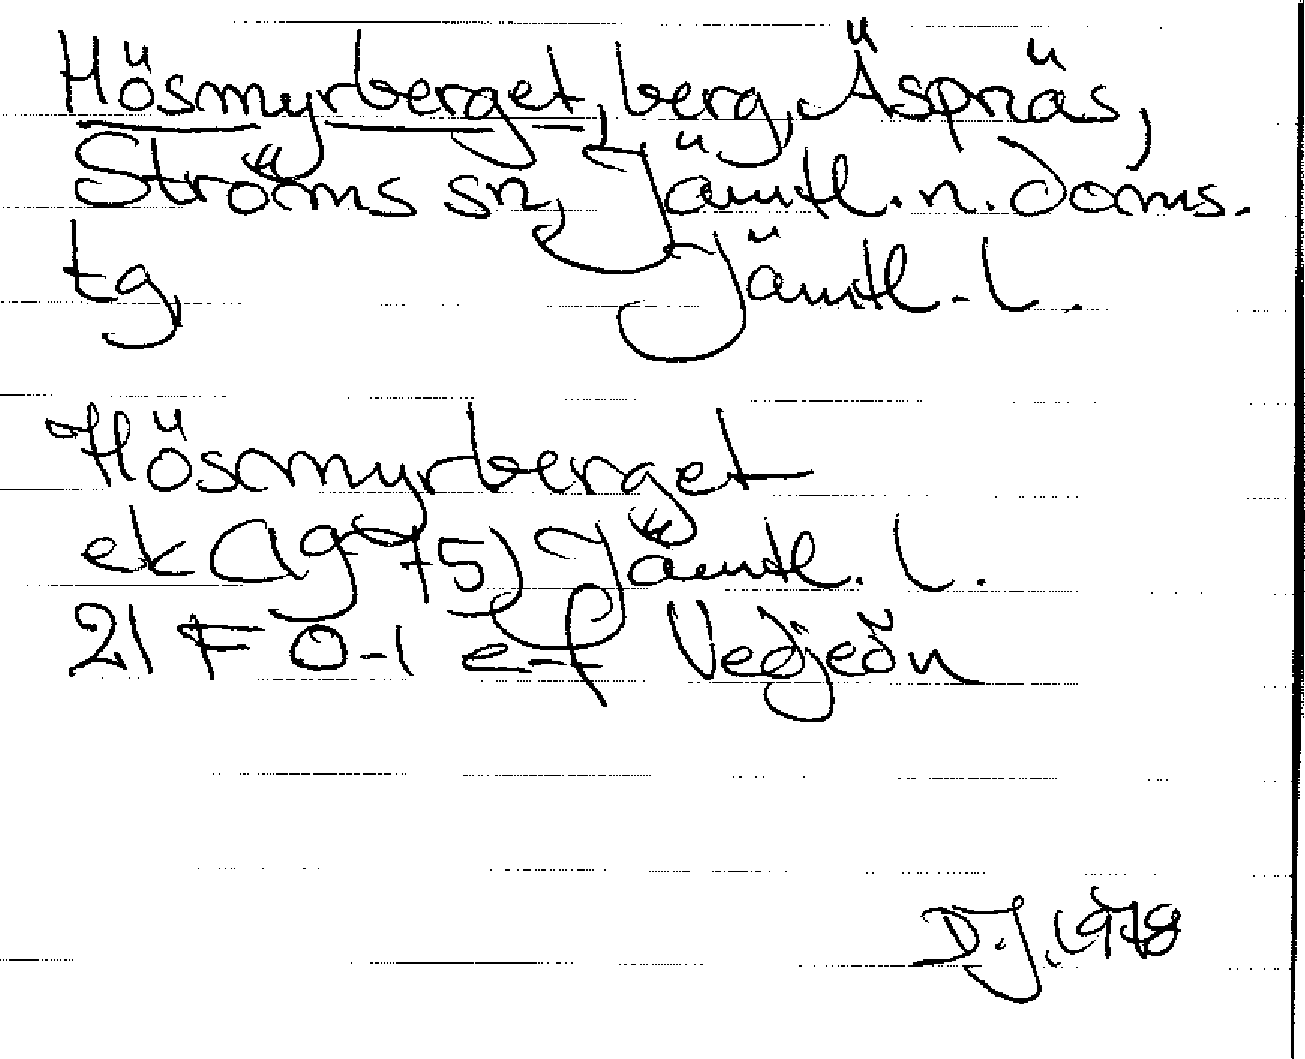 Hösmyrberget, berg, Äspnäs,
Ströms sn, Jämtl. n. doms.
tg, Jämtl. l.
Hösmyrberget
ek (Ag 75) Jämtl. l.
21 F 0-1 e-f Vedjeön
D.J. 1978